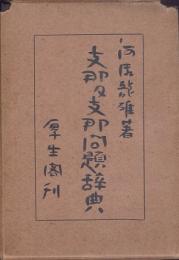 河瀬龍雄著
支那及支那問題辞典
厚生閣刊